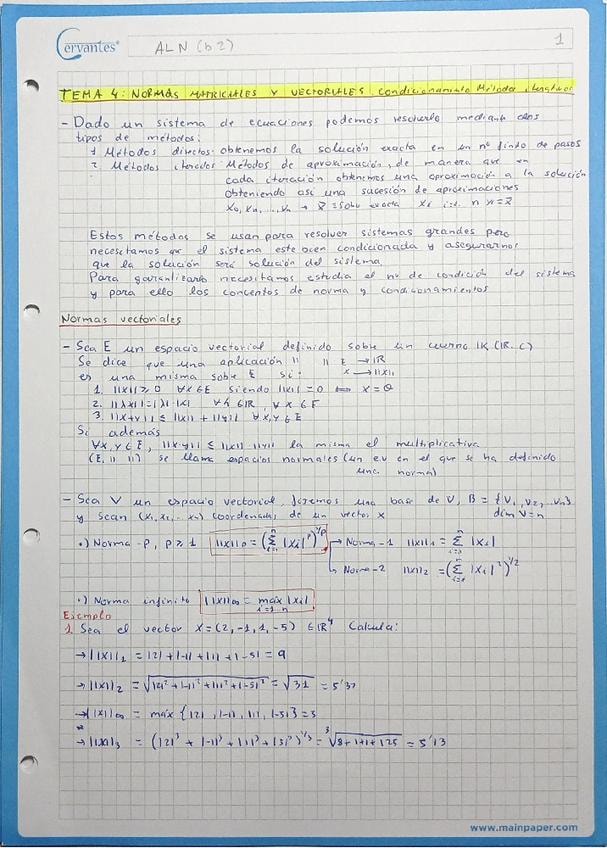 Cervantes
ALN (b2)
1
TEMA 4: NORMAS MATRICIALES Y VECTORIALES. Condicionamiento. Métodos iterativos
- Dado un sistema de ecuaciones podemos resolverlo mediante dos
tipos de métodos:
1. Métodos directos: obtenemos la solución exacta en un nº finito de pasos
2. Métodos iterados: Métodos de aproximación, de manera que en
cada iteración obtenemos una aproximación a la solución
obteniendo así una sucesión de aproximaciones
Estos métodos se usan para resolver sistemas grandes pero
necesitamos que el sistema este bien condicionada y asegurarnos
que la solución será solución del sistema.
Para garantizarlo necesitamos estudia el nº de condición del sistema
y para ello los conceptos de norma y condicionamientos
Normas vectoriales
- Sea E un espacio vectorial definido sobre un cuerpo IK (IR, C)
Se dice que una aplicación || || E → IR
x → ||x||
es una misma sobre E si:
1. ||x|| ≥ 0 ∀x∈E siendo ||x|| = 0 ⟺ x = θ
2. ||λx|| = |λ|·|x| ∀λ∈IR, ∀x∈E
3. ||x+y|| ≤ ||x|| + ||y|| ∀x,y∈E
Si además
∀x,y∈E, ||x·y|| ≤ ||x||·||y|| la misma el multiplicativa
(E, || ||) se llama espacios normales (un ev en el que se ha definido
una norma)
- Sea V un espacio vectorial, fijemos una base de V, B = {v₁, v₂, ... vₙ}
y sean (x₁, x₂, ... xₙ) coordenadas de un vector x
dim V = n
·) Norma-p, p ≥ 1 ||x||p = (Σⁿᵢ₌₁ |xᵢ|ᵖ)^1/p → Norma-1 ||x||₁ = Σⁿᵢ₌₁ |xᵢ|
→ Norma-2 ||x||₂ = (Σⁿᵢ₌₁ |xᵢ|²)^1/2
·) Norma infinito ||x||∞ = max |xᵢ|
i=1..n
Ejemplo
1. Sea el vector x = (2, -1, 1, -5) ∈ IR⁴ Calcula:
→ ||x||₁ = |2| + |-1| + |1| + |-5| = 9
→ ||x||₂ = √|2|² + |-1|² + |1|² + |-5|² = √31 = 5'57
→ ||x||∞ = max {|2|, |-1|, |1|, |-5|} = 5
→ ||x||₃ = (|2|³ + |-1|³ + |1|³ + |5|³)^1/3 = ³√8+1+1+125 = 5'13
www.mainpaper.com